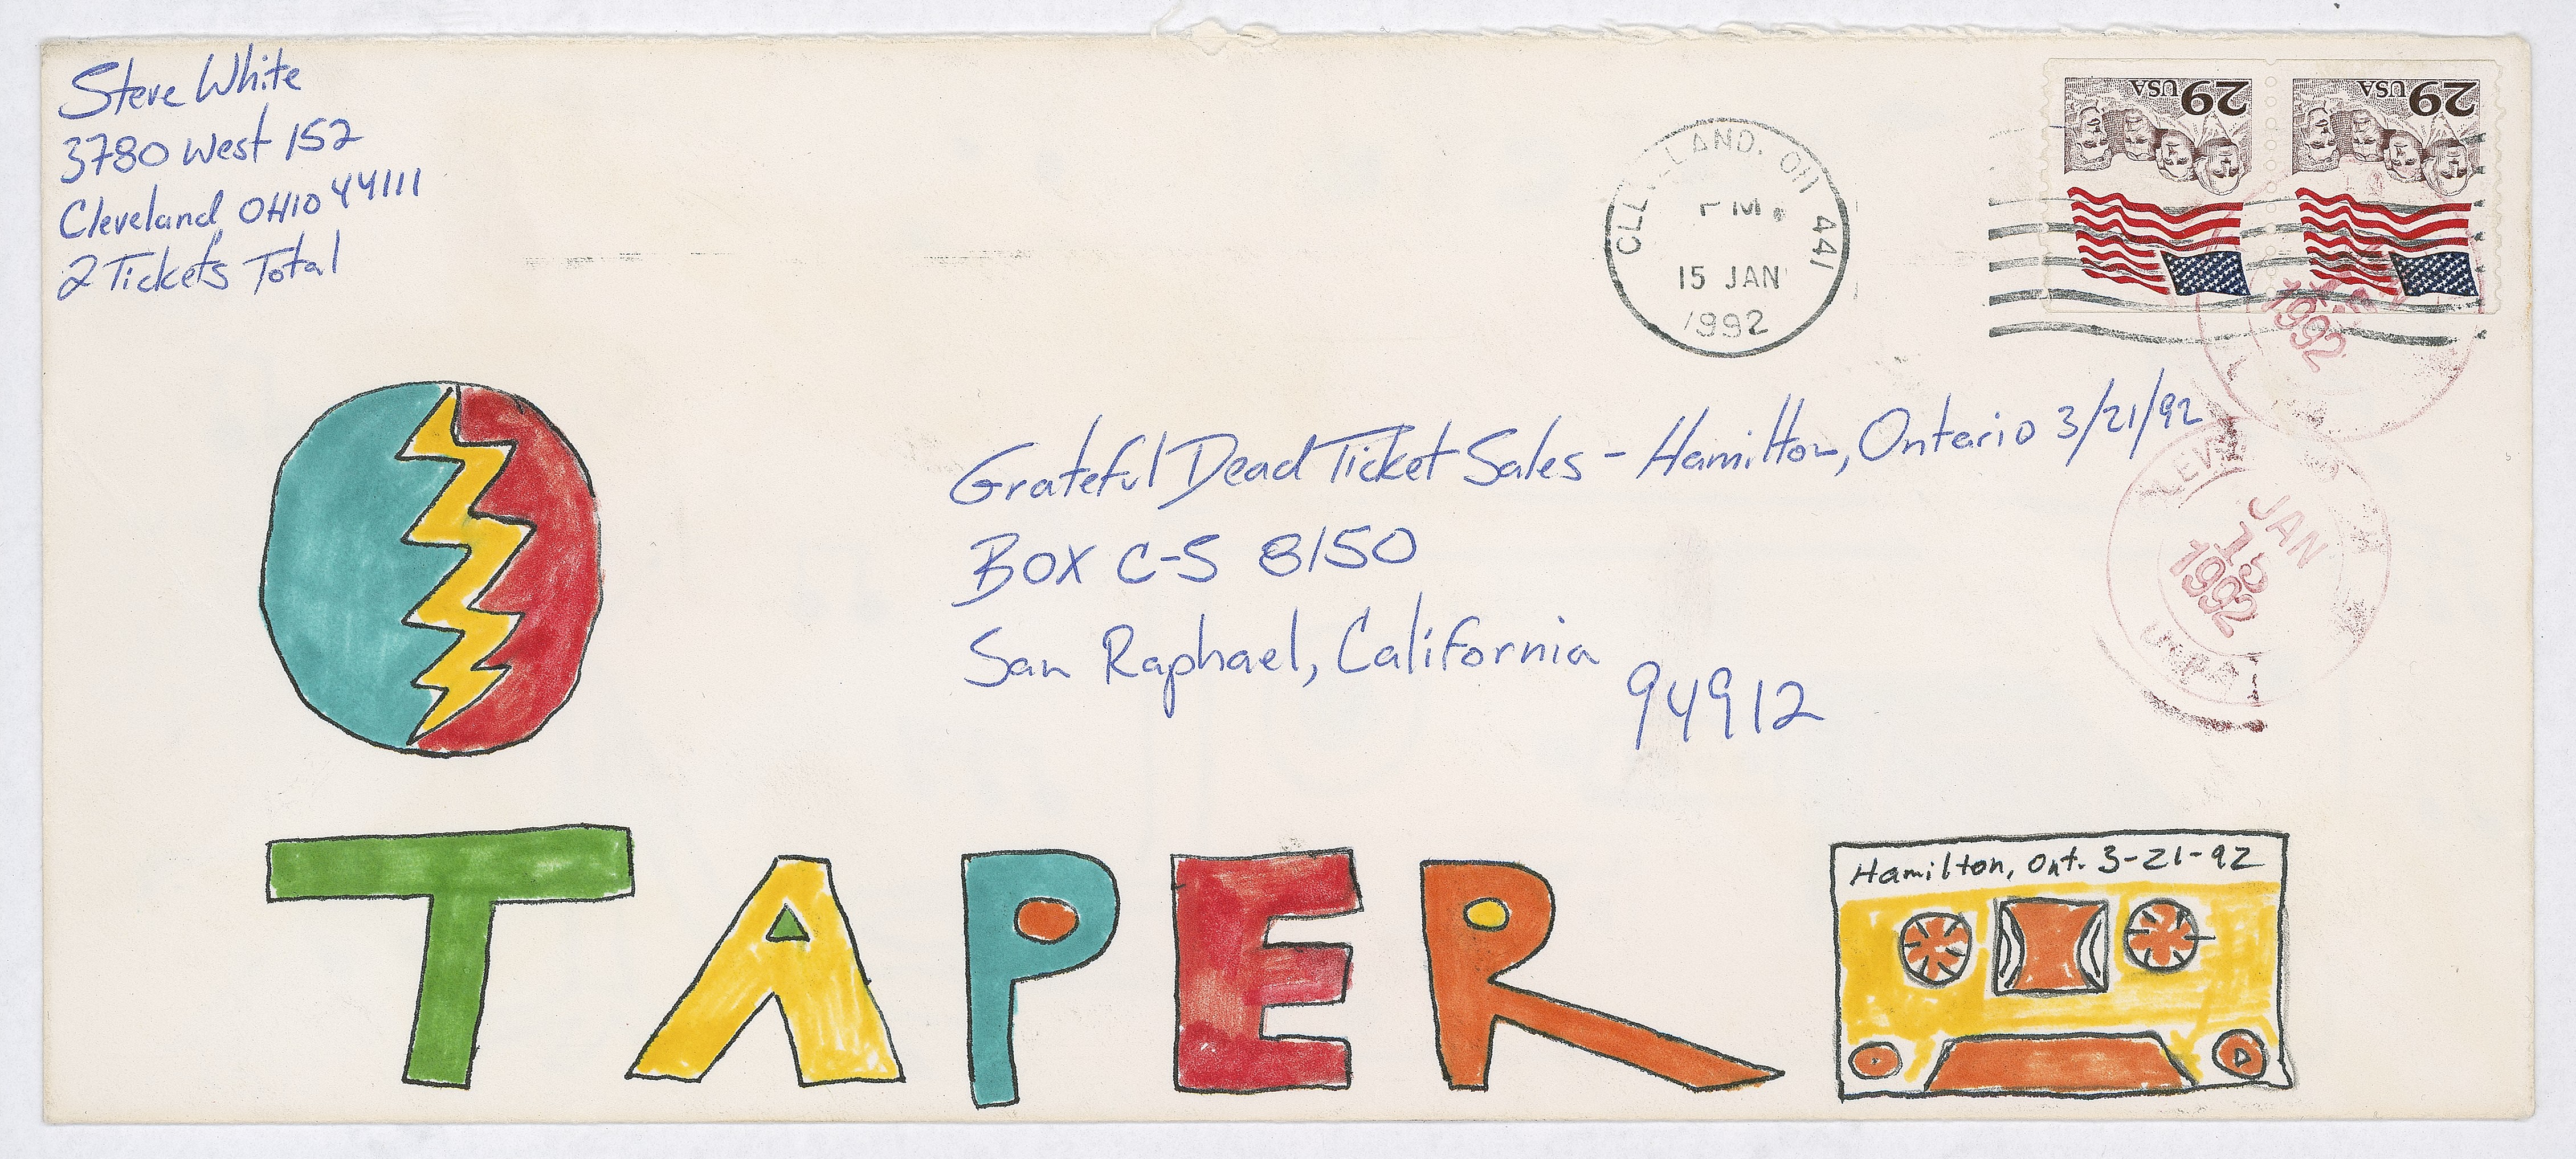 Steve White
3780 West 152
Cleveland, OHIO 44111
2 Tickets Total
29 USA
29 USA
441
PM
15 JAN
1992
1992
Grateful Dead Ticket Sales - Hamilton, Ontario 3/21/92
BOX C-S 8150
San Raphael, California
94912
JAN
15
1992
TAPER
Hamilton, Ont. 3-21-92